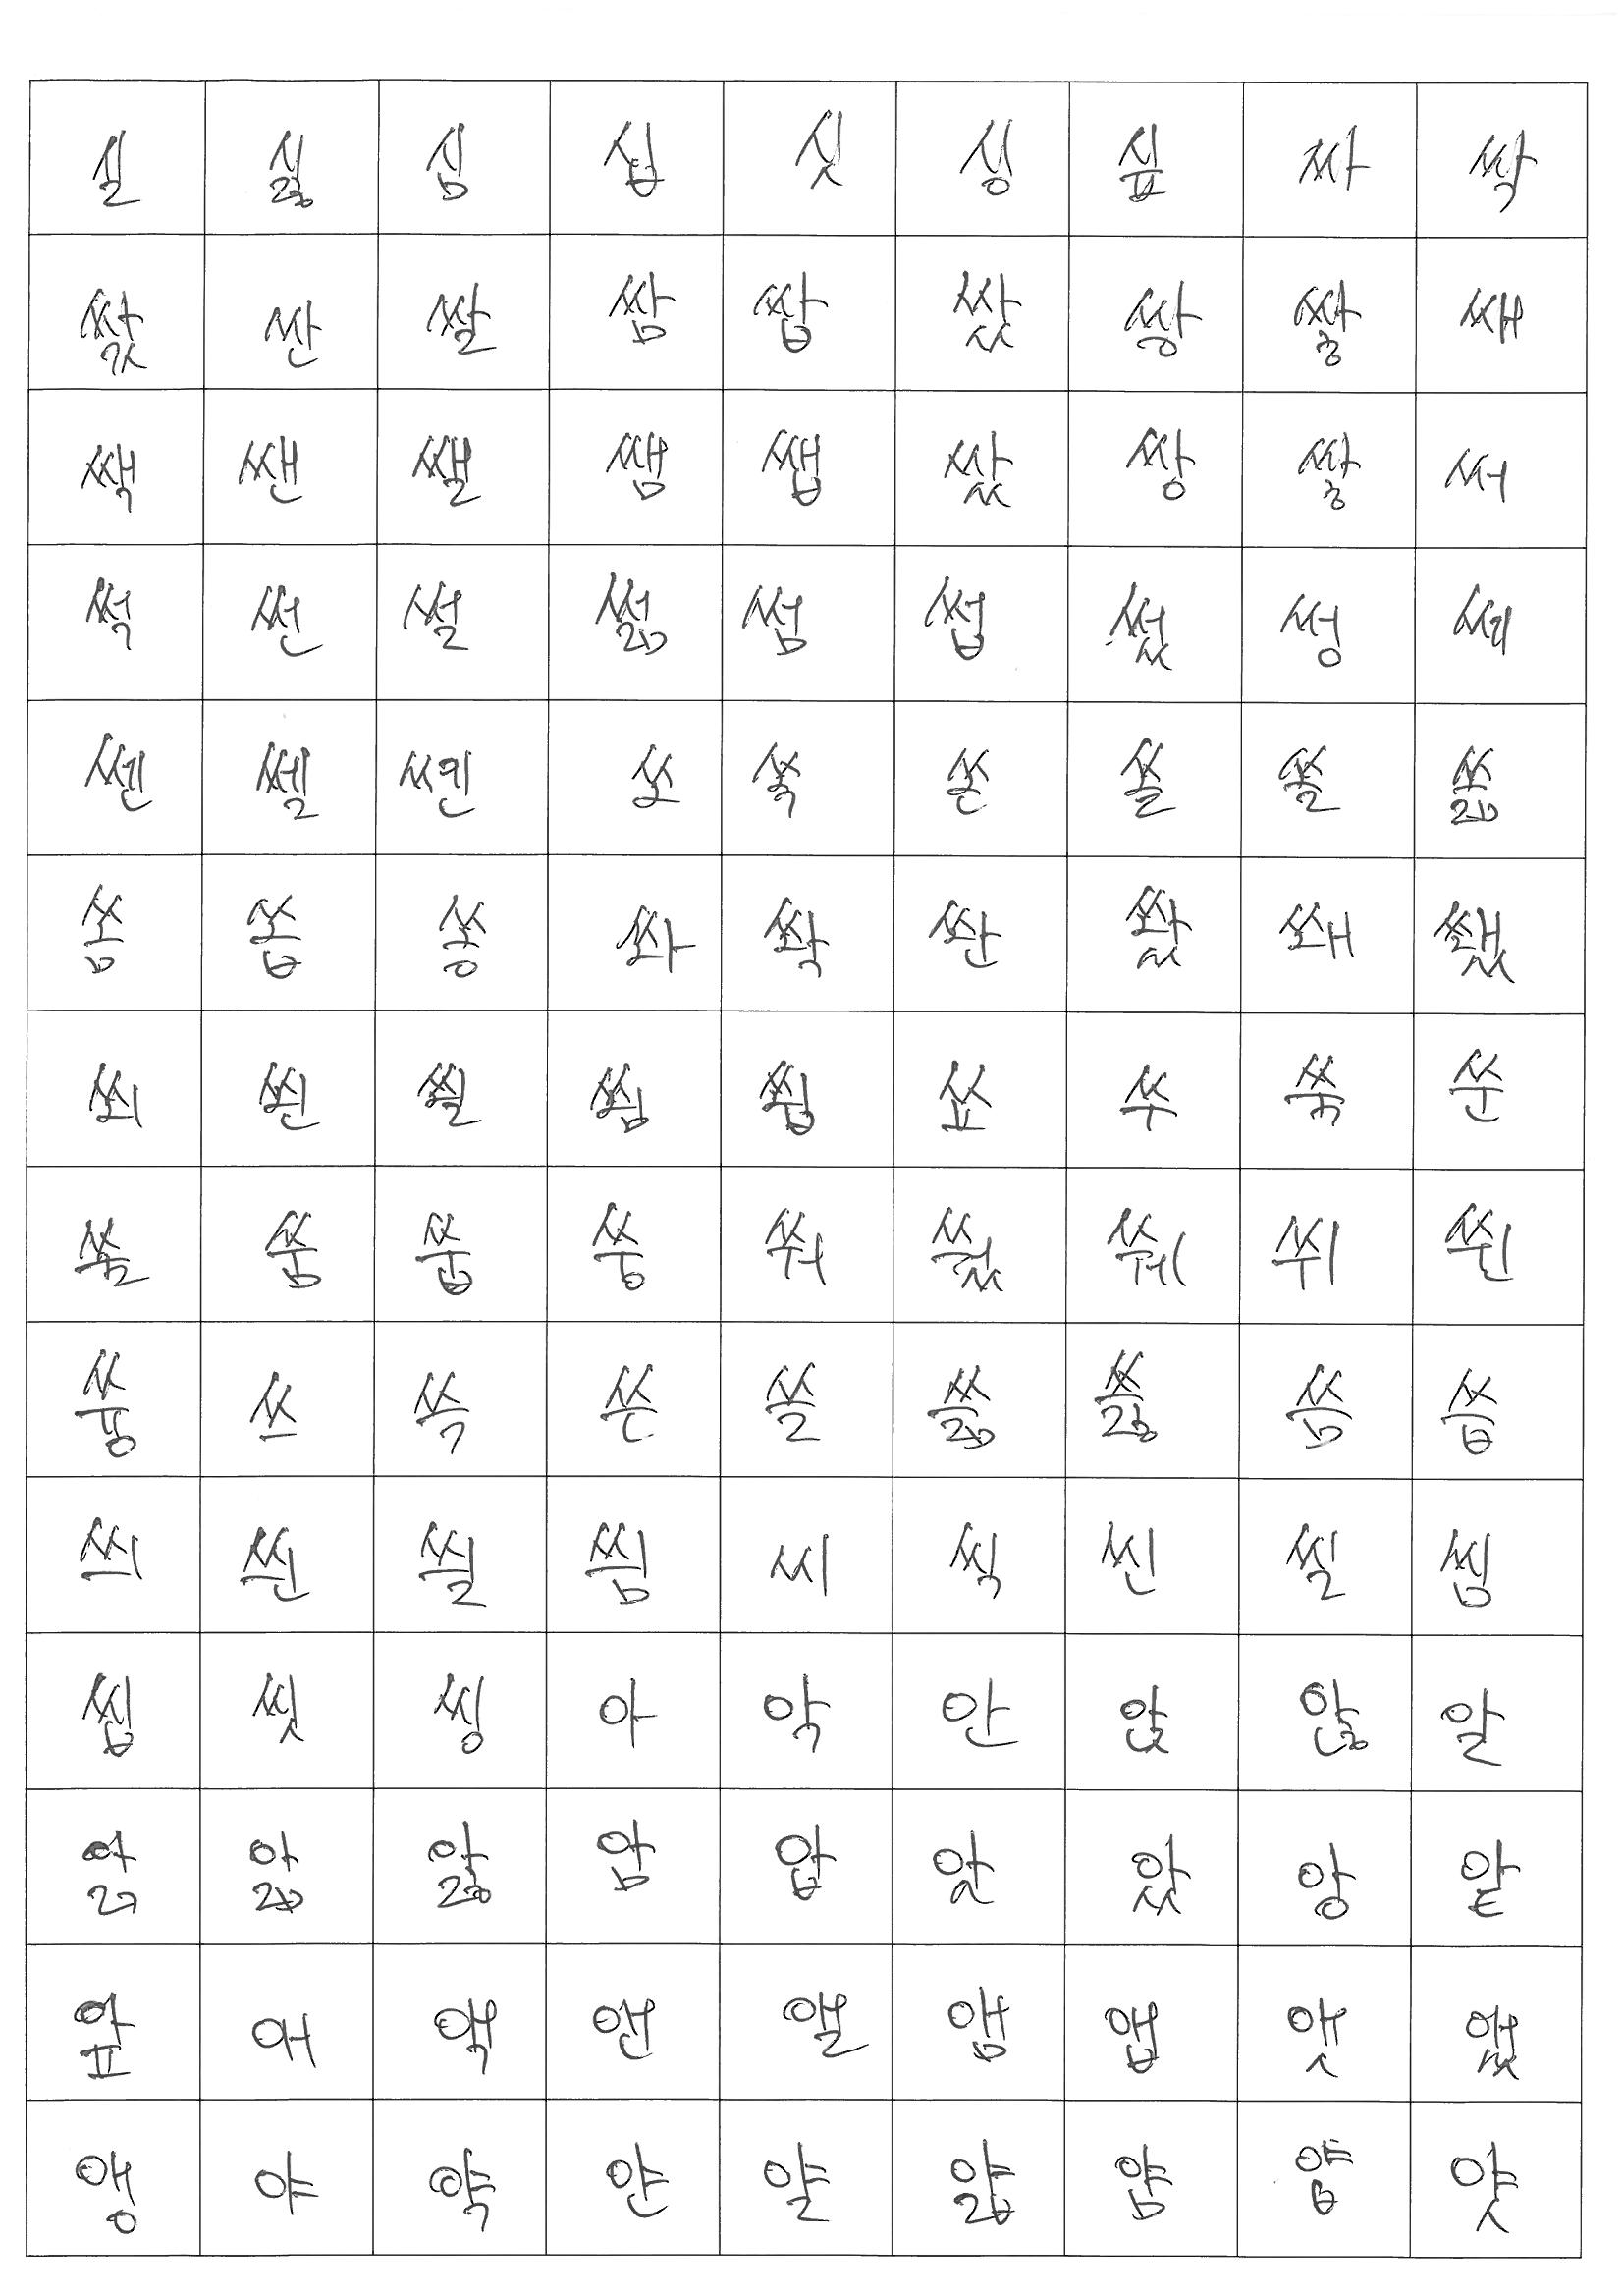 실 싫 심 십 싯 싱 싶 싸 싹
싻 싼 쌀 쌈 쌉 쌌 쌍 쌓 쌔
쌕 쌘 쌜 쌤 쌥 쌌 쌍 쌓 써
썩 썬 썰 썲 썸 썹 썼 썽 쎄
쎈 쎌 쏀 쏘 쏙 쏜 쏠 쏠 쏢
쏨 쏩 쏭 쏴 쏵 쏸 쐈 쐐 쐤
쐬 쐰 쐴 쐼 쐽 쑈 쑤 쑥 쑨
쑬 쑴 쑵 쑹 쒀 쒔 쒜 쒸 쒼
쓩 쓰 쓱 쓴 쓸 쓺 쓿 씀 씁
씌 씐 씔 씜 씨 씩 씬 씰 씸
씹 씻 씽 아 악 안 앉 않 알
앍 앎 앓 암 압 앗 았 앙 앝
앞 애 액 앤 앨 앰 앱 앳 앴
앵 야 약 얀 얄 얇 얌 얍 얏